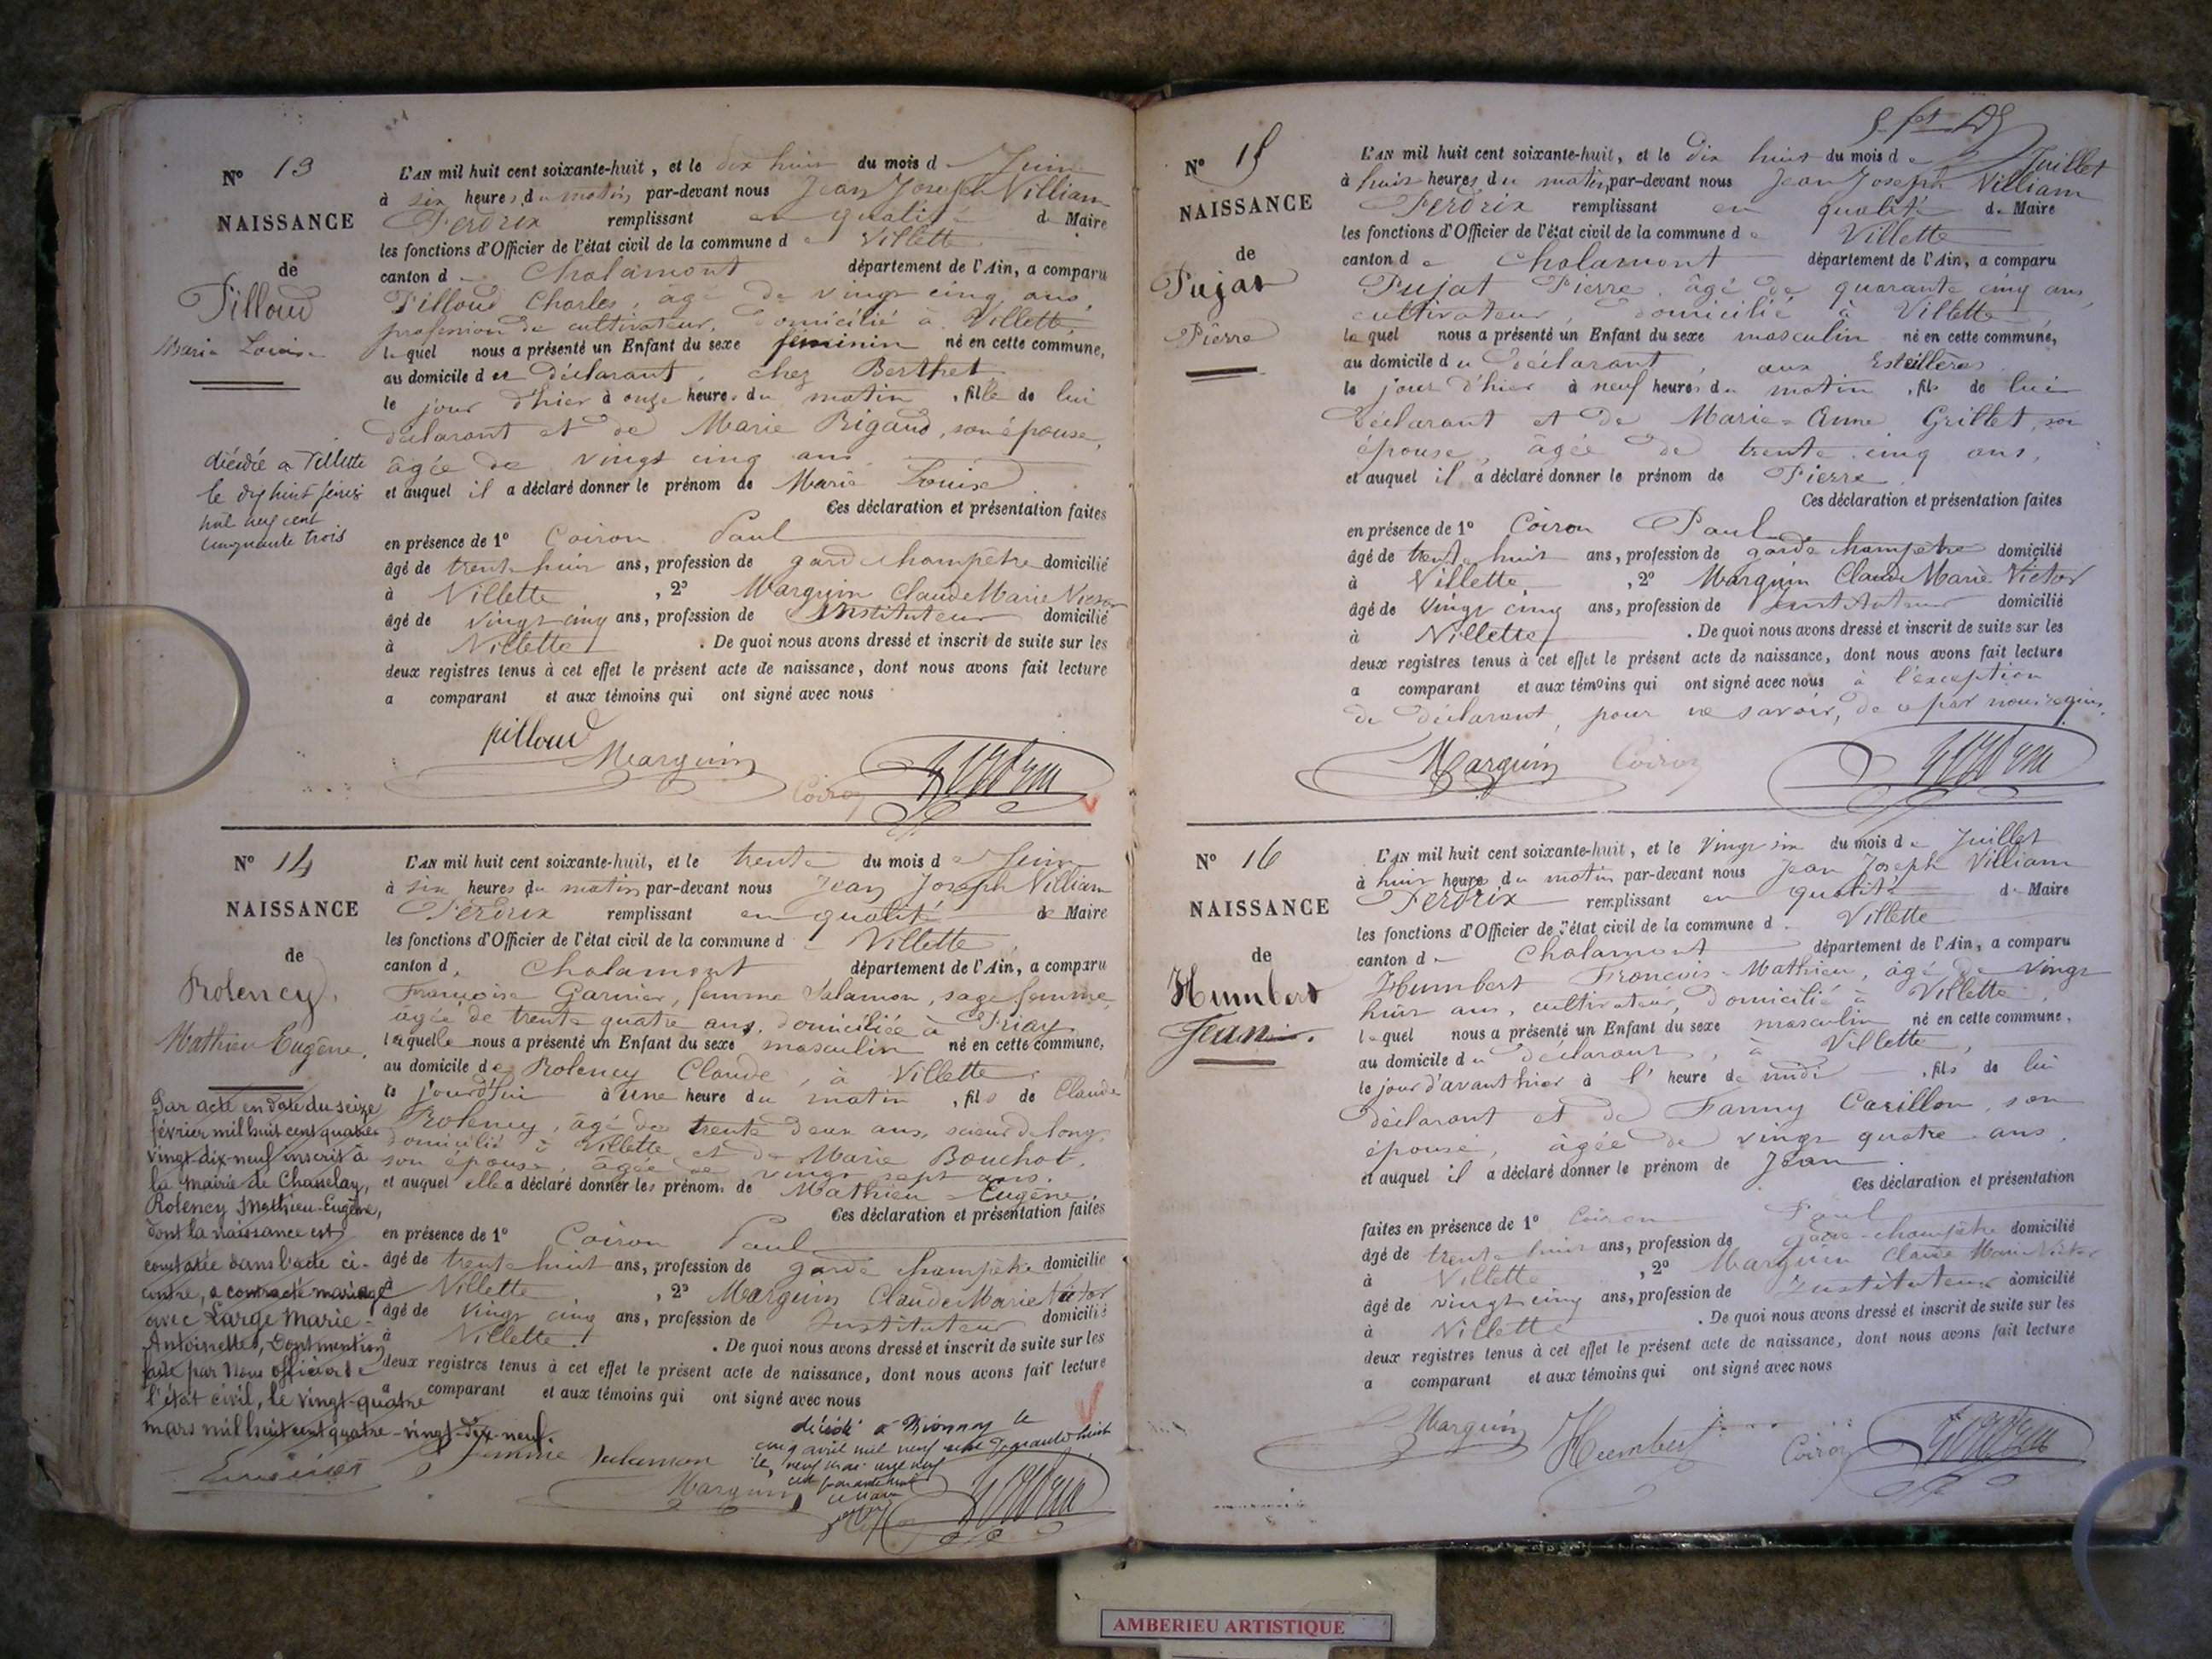 Nº 13
NAISSANCE
de
Pilloud
Marie Louise
décédée a Villette
le dix huit
mil neuf cent
cinquante trois
L'AN mil huit cent soixante-huit, et le dix huit du mois de Juin
à six heures du matin, par-devant nous Jean Joseph Villiam
Perdrix remplissant en qualité de Maire
les fonctions d'Officier de l'état civil de la commune de Villette
canton de Chalamont département de l'Ain, a comparu
Pilloud Charles, âgé de vingt cinq ans,
profession de cultivateur, domicilié à Villette,
lequel nous a présenté un Enfant du sexe féminin né en cette commune,
au domicile du déclarant, chez Berthet
le jour d'hier à onze heures du matin, fille de lui
déclarant et de Marie Rigaud, son épouse,
âgée de vingt cinq ans
et auquel il a déclaré donner le prénom de Marie Louise
Ces déclaration et présentation faites
en présence de 1º Coiron Paul
âgé de trente huit ans, profession de garde champêtre domicilié
à Villette, 2º Marguin Claude Marie Victor
âgé de vingt cinq ans, profession de Instituteur domicilié
à Villette. De quoi nous avons dressé et inscrit de suite sur les
deux registres tenus à cet effet le présent acte de naissance, dont nous avons fait lecture
a comparant et aux témoins qui ont signé avec nous
pilloud
Marguin
Coiron
Nº 14
NAISSANCE
de
Rolency,
Mathieu Eugène.
Par acte en date du seize
février mil huit cent quatre
vingt-dix-neuf inscrit à
la Mairie de Chanelay,
Rolency Mathieu-Eugène,
dont la naissance est
constatée dans l'acte ci-
contre, a contracté mariage
avec Large Marie-
Antoinette, Dont mention
faite par Nous officier de
l'état civil, le vingt-quatre
mars mil huit cent quatre-vingt-dix-neuf.
L'AN mil huit cent soixante-huit, et le trente du mois de Juin
à six heures du matin par-devant nous Jean Joseph Villiam
Perdrix remplissant en qualité de Maire
les fonctions d'Officier de l'état civil de la commune de Villette
canton de Chalamont département de l'Ain, a comparu
Françoise Garnier, femme Salamon, sage femme,
agée de trente quatre ans, domiciliée à Priay
laquelle nous a présenté un Enfant du sexe masculin né en cette commune,
au domicile de Rolency Claude, à Villette
le jourd'hui à une heure du matin, fils de Claude
Rolency, âgé de trente deux ans, scieur de long,
domicilié à Villette et de Marie Bouchot,
son épouse, âgée de vingt sept ans.
et auquel elle a déclaré donner les prénoms de Mathieu Eugène.
Ces déclaration et présentation faites
en présence de 1º Coiron Paul
âgé de trente huit ans, profession de garde champêtre domicilié
à Villette, 2º Marguin Claude Marie Victor
âgé de vingt cinq ans, profession de Instituteur domicilié
à Villette. De quoi nous avons dressé et inscrit de suite sur les
deux registres tenus à cet effet le présent acte de naissance, dont nous avons fait lecture
a comparant et aux témoins qui ont signé avec nous
décédé a Bionnay le
cinq avril mil neuf cent quarante huit
femme Salamon
Marguin
Nº 15
NAISSANCE
de
Pujat
Pierre
L'AN mil huit cent soixante-huit, et le dix huit du mois de Juillet
à huit heures du matin, par-devant nous Jean Joseph Villiam
Perdrix remplissant en qualité de Maire
les fonctions d'Officier de l'état civil de la commune de Villette
canton de Chalamont département de l'Ain, a comparu
Pujat Pierre, âgé de quarante cinq ans,
cultivateur, domicilié à Villette,
lequel nous a présenté un Enfant du sexe masculin né en cette commune,
au domicile du déclarant, aux Esteillères
le jour d'hier à neuf heures du matin, fils de lui
déclarant et de Marie-Anne Grillet, son
épouse, âgée de trente cinq ans,
et auquel il a déclaré donner le prénom de Pierre
Ces déclaration et présentation faites
en présence de 1º Coiron Paul
âgé de trente huit ans, profession de garde champêtre domicilié
à Villette, 2º Marguin Claude Marie Victor
âgé de vingt cinq ans, profession de instituteur domicilié
à Villette. De quoi nous avons dressé et inscrit de suite sur les
deux registres tenus à cet effet le présent acte de naissance, dont nous avons fait lecture
a comparant et aux témoins qui ont signé avec nous à l'exception
du déclarant, pour ne savoir, de ce par nous requis.
Marguin Coiron
Nº 16
NAISSANCE
de
Humbert
Jean.
L'AN mil huit cent soixante-huit, et le vingt six du mois de Juillet
à huit heures du matin par-devant nous Jean Joseph Villiam
Perdrix remplissant en qualité de Maire
les fonctions d'Officier de l'état civil de la commune d Villette
canton de Chalamont département de l'Ain, a comparu
Humbert François-Mathieu, âgé de vingt
huit ans, cultivateur, domicilié à Villette,
lequel nous a présenté un Enfant du sexe masculin né en cette commune,
au domicile du déclarant, à Villette,
le jour d'avant hier à l'heure de midi, fils de lui
déclarant et de Fanny Carillon, son
épouse, âgée de vingt quatre ans,
et auquel il a déclaré donner le prénom de Jean
Ces déclaration et présentation
faites en présence de 1º Coiron Paul
âgé de trente huit ans, profession de garde-champêtre domicilié
à Villette, 2º Marguin Claude Marie Victor
âgé de vingt cinq ans, profession de Instituteur domicilié
à Villette. De quoi nous avons dressé et inscrit de suite sur les
deux registres tenus à cet effet le présent acte de naissance, dont nous avons fait lecture
a comparant et aux témoins qui ont signé avec nous
Marguin Humbert Coiron
AMBERIEU ARTISTIQUE